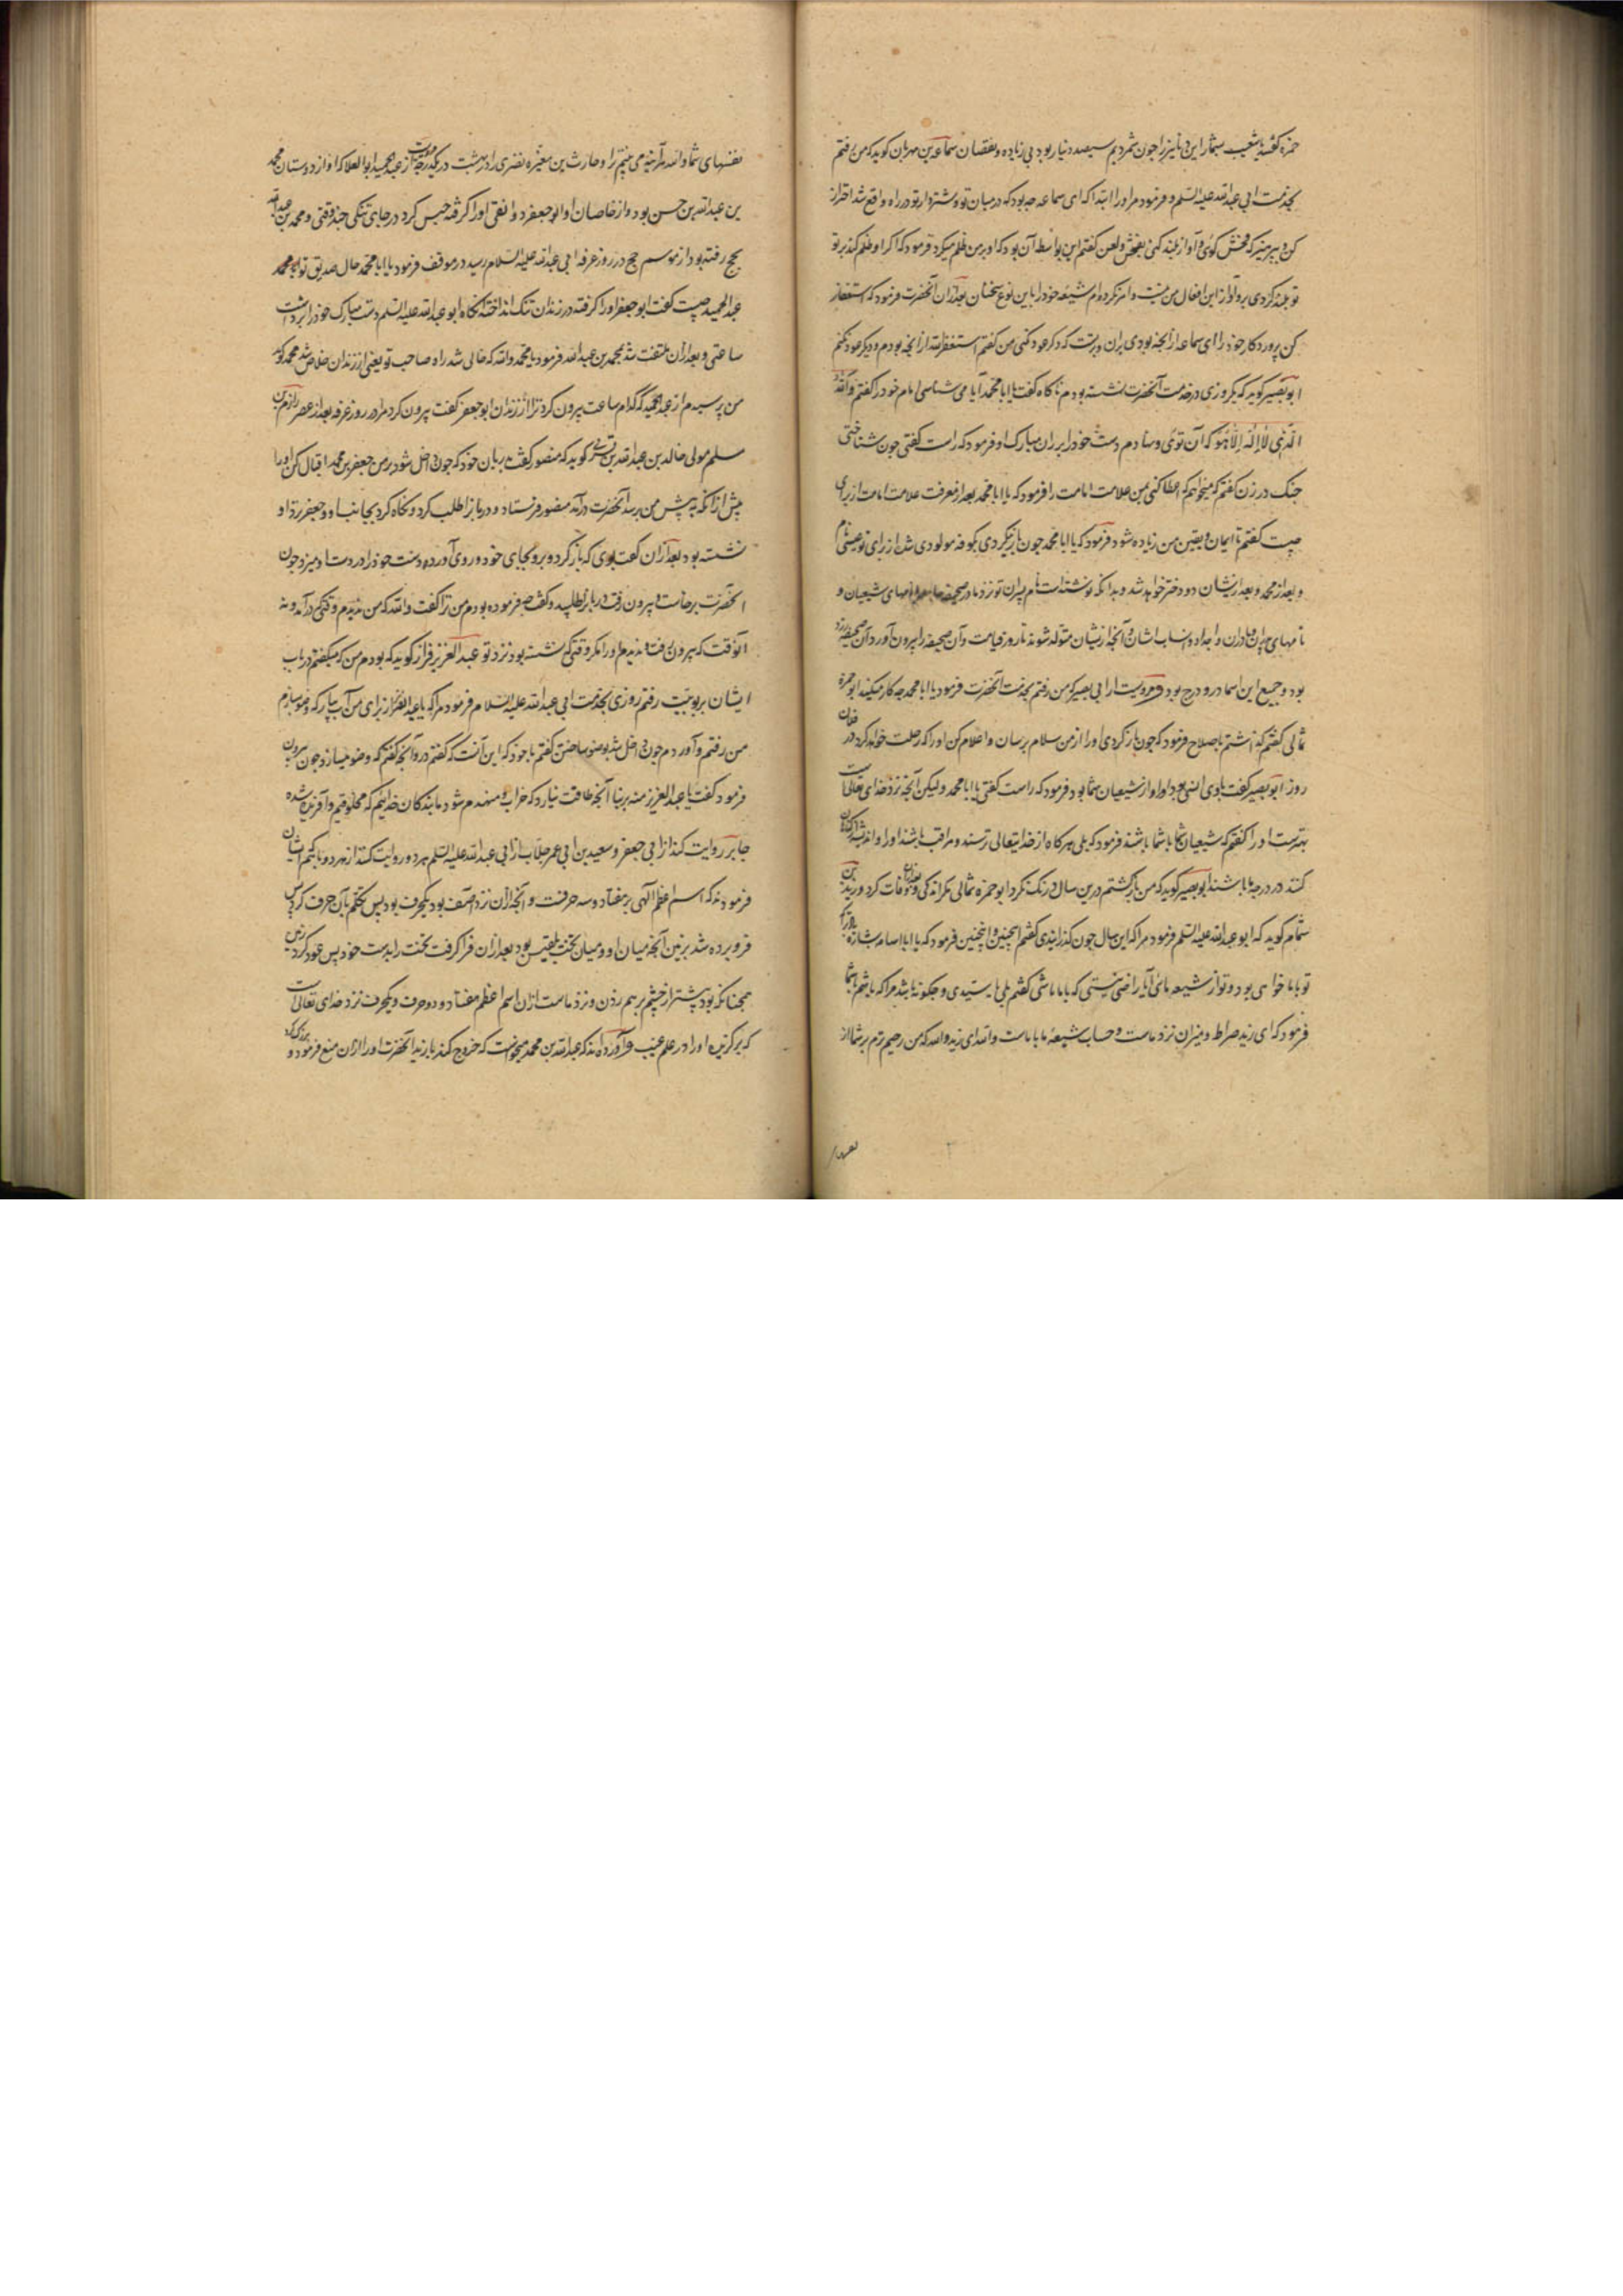 حمزه گفت یا شعیب بشمار این دنانیر را چون شمردیم سیصد دینار بود بی زیاده و نقصان سماعة بن مهران کوید که من رفتم
بخدمت ابی عبدالله علیه السلم و فرمود مرا و را ابتدا که ای سماعه چه بود که در میان تو و شتردار تو در راه واقع شد احتراز
کن و بپرهیز که فحش کوئی و آواز بلند کنی بفحش و لعن کفتم این بواسطه آن بود که او بر من ظلم میکرد فرمود که اکر او ظلم کند بر تو
تو بلند کردی برو آواز این افعال من نیست و امر نکرده ام شیعه خود را باین نوع سخنان بعد ازان آنحضرت فرمود که استغفار
کن پروردکار خود را ای سماعه از آنچه بودی بران و که دکر عود کنی من کفتم استغفر الله از آنچه بودم و دیکر عود نکنم
ابو بصیر کوید که یکروزی در خدمت آنحضرت نشسته بودم ناکاه کفت یا ابا محمد آیا می شناسی امام خود را کفتم والله
الذی لا اله الا هو که آن توئی و نهادم دست خود را بر ران مبارک او فرمود که راست کفتی چون شناختی
چنک در زن کفتم که میخواهم که اعطا کنی بمن علامت امامت را فرمود که یا ابا محمد بعد از معرفت علامت امامت از برای
چیست کفتم تا ایمان و یقین من زیاده شود فرمود که یا ابا محمد چون باز کردی بکوفه مولودی شده از برای تو عیسی نام
و بعد از محمد و بعد ازیشان دو دختر خواهد شد و بدانکه نوشته است نام پسران تو نزد ما در صحیفه جامعه و نامهای شیعیان و
نامهای پدران و مادران و اجداد و انساب ایشان و آنچه ازیشان متولد شوند تا روز قیامت و آن صحیفه را بیرون آورد آن صحیفه زرد
بود و جمیع این اسما درو درج بود و مرویست از ابی بصیر که من رفتم بخدمت آنحضرت فرمود یا ابا محمد چه کار میکند ابو حمزه
ثمالی کفتم کذاشتم باصلاح فرمود که چون باز کردی او را از من سلام برسان و اعلام کن او را که رحلت خواهد کرد در فلان
روز ابو بصیر کفت او از شیعیان شما بود فرمود که راست کفتی یا ابا محمد ولیکن آنچه نزد خدای تعالی است
بهترست او را کفتم که شیعیان شما با شما باشند فرمود که بلی هرکاه از خدایتعالی ترسند و مراقب باشند او را و
کنند در درجه ما باشند ابو بصیر کوید که من بازکشتم درین سال و درنک نکرد ابو حمزه ثمالی مکر اندکی و وفات کرد و زید بن
شحام کوید که ابو عبدالله علیه السلم فرمود مرا که این سال چون کذرانیدی کفتم اینچنین و اینچنین فرمود که یا ابا اسامه بشارت
تو با ما خواهی بود و تو از شیعه مائی آیا راضی نیستی که با ما باشی کفتم بلی یا سیدی و چکونه باشد مرا که باشم با شما
فرمود که ای زید صراط و میزان نزد ماست و حساب شیعهٔ ما با ماست والله ای زید والله که من رحیم ترم بر شما از
نفسهای
نفسهای شما والله هر آینه می بینم ترا و حارث بن مغیره نضری را در بهشت در یکدرجه مرویست از عبدالحمید ابو العلا که او از دوستان محمد
بن عبدالله بن حسن بود و از خاصان او ابو جعفر دوانقی او را کرفته حبس کرد در جای تنکی چند وقتی و محمد بن عبدالله
بحج رفته بود از موسم حج در روز عرفه ابی عبدالله علیه السلام رسید در موقف فرمود یا ابا محمد حال صدیق تو محمد
عبد الحمید چیست کفت ابو جعفر او را کرفته در زندان تنک انداخته آنکاه ابو عبدالله علیه السلم دست مبارک خود را برداشت
ساعتی و بعد ازان ملتفت شد بمحمد بن عبدالله فرمود یا محمد والله که خالی شد راه صاحب تو یعنی از زندان خلاص شد محمد کوید
من پرسیدم از عبدالحمید که کدام ساعت بیرون کرد ترا از زندان ابو جعفر کفت بیرون کرد مرا در روز عرفه بعد از عصر
سلم مولی خالد بن عبدالله بن قسری کوید که منصور کفت بدربان خود که چون داخل شود بر من جعفر بن محمد اقبال کن او را
پیش از آنکه به پیش من رسد آنحضرت در آمد منصور فرستاد و دربان را طلب کرد و نکاه کرد بجانب او و جعفر نزد او
نشسته بود بعد ازان کفت بوی که باز کرد و برو بجای خود و روی آورده دست خود را در دست او میزد چون
آنحضرت برخاست و بیرون رفت دربان را طلبید و کفت چه فرموده بودم من ترا کفت والله که من ندیدم وقتیکه در آمد و نه
آنوقت که بیرون رفت و ندیدم او را مکر وقتی که نشسته بود نزد تو عبد العزیز قزاز کوید که بودم من که میکفتم در باب
ایشان بربوبیت رفتم روزی بخدمت ابی عبدالله علیه السلام فرمود مرا که یا عبد العزیز از برای من آب بیار که وضو سازم
من رفتم و آوردم چون داخل شد بوضو ساختن کفتم با خود که این آنست که کفتم درو آنچه کفتم که وضو میسازد چون بیرون
فرمود کفت یا عبد العزیز منه بر بنا آنچه طاقت نیارد که خراب و منهدم شود ما بندکان خدائیم که مخلوقیم و آفریده شده
جابر روایت کند از ابی جعفر و سعید بن ابی عمر جلاب از ابی عبدالله علیه السلم هر دو روایت کنند از هر دو باآنکه ایشان
فرمودند که اسم اعظم الهی بر هفتاد و سه حرفست و آنچه ازان نزد آصف بود یکحرف بود پس تکلم بآن حرف کرد پس
فرو برده شد بزمین آنچه میان او و میان تخت بلقیس بود بعد ازان فرا کرفت تخت را بدست خود پس عود کرد زمین
همچنانکه بود پیشتر از چشم بر هم زدن و نزد ماست ازان اسم اعظم هفتاد و دو حرف و یکحرف نزد خدای تعالی است
که برکزیده او را در علم غیب و آورده اند که عبدالله بن محمد میخواست که خروج کند با زید آنحضرت او را ازان منع فرمود و